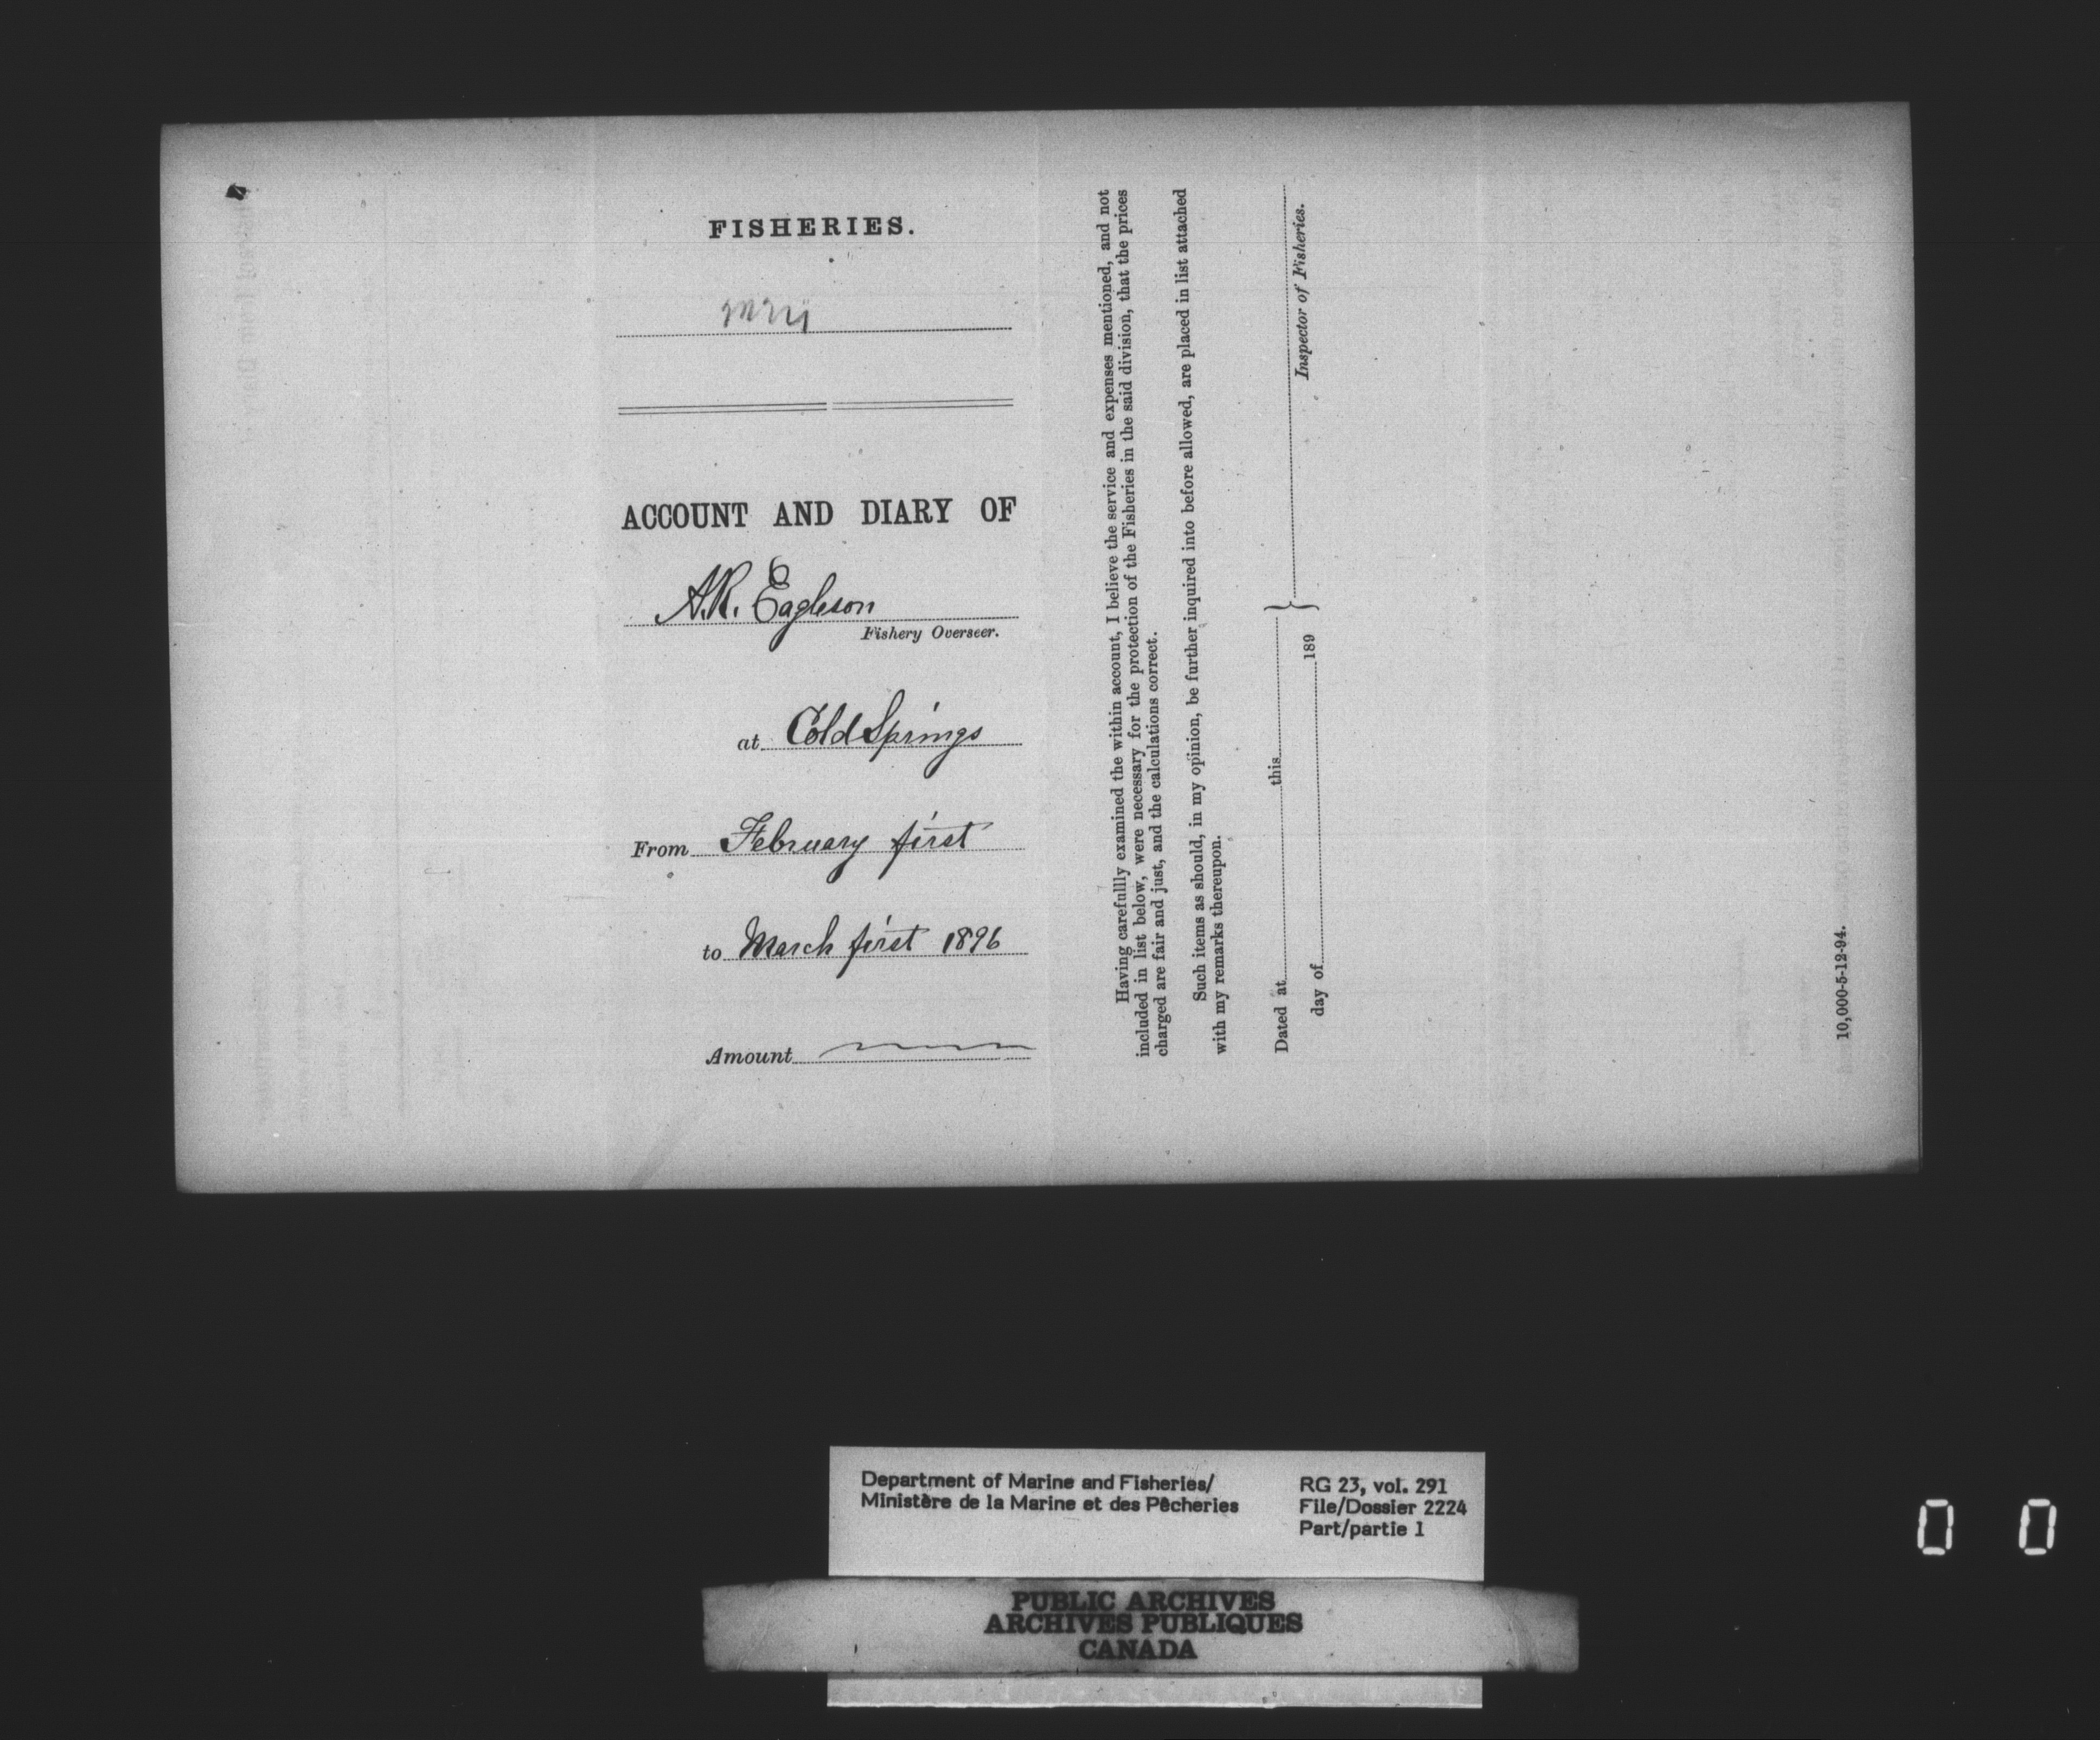 FISHERIES.
2224
ACCOUNT AND DIARY OF
A.R. Eagleson
Fishery Overseer.
at Cold Springs
From February first
to March first 1896
Amount
Having carefullly examined the within account, I believe the service and expenses mentioned, and not
included in list below, were necessary for the protection of the Fisheries in the said division, that the prices
charged are fair and just, and the calculations correct.
Such items as should, in my opinion, be further inquired into before allowed, are placed in list attached
with my remarks thereupon.
Dated at this
day of 189
Inspector of Fisheries.
10,000-5-12-94.
Department of Marine and Fisheries/
Ministère de la Marine et des Pêcheries
RG 23, vol. 291
File/Dossier 2224
Part/partie 1
PUBLIC ARCHIVES
ARCHIVES PUBLIQUES
CANADA
0 0